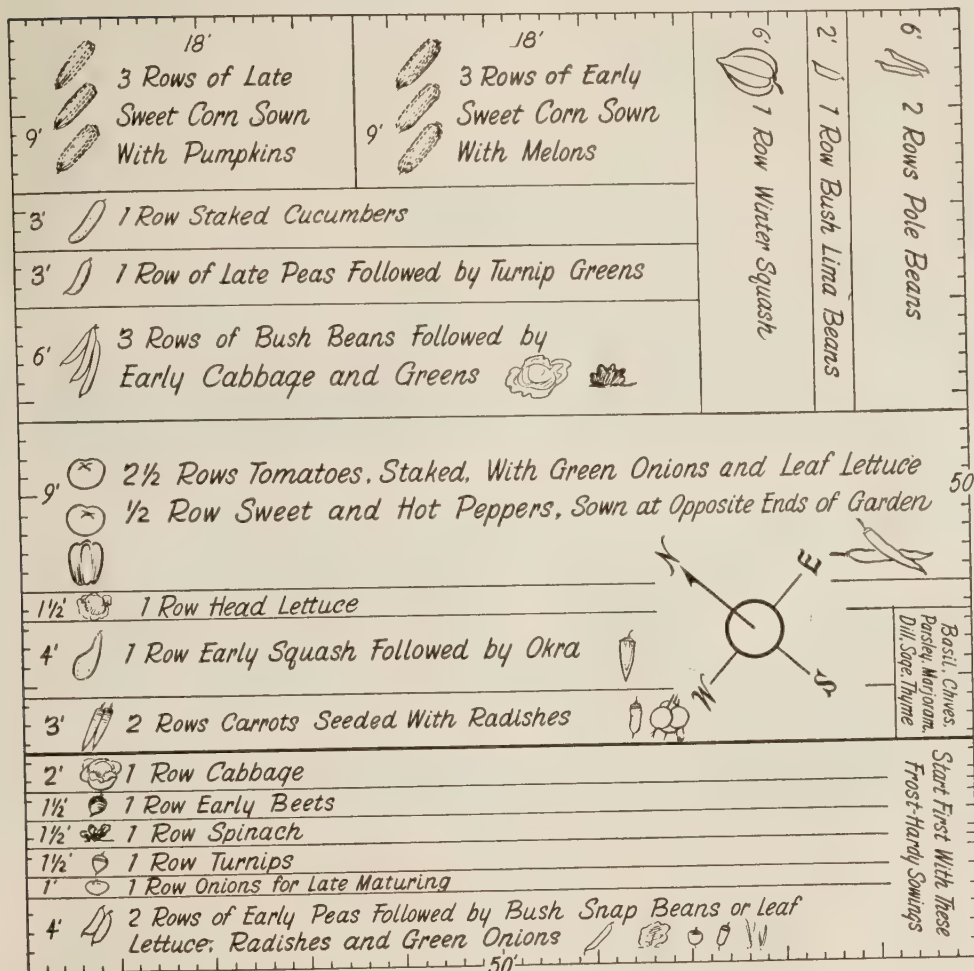 18'
9'
3 Rows of Late
Sweet Corn Sown
With Pumpkins
18'
9'
3 Rows of Early
Sweet Corn Sown
With Melons
6' 1 Row Winter Squash
2' 1 Row Bush Lima Beans
6' 2 Rows Pole Beans
3' 1 Row Staked Cucumbers
3' 1 Row of Late Peas Followed by Turnip Greens
6'
3 Rows of Bush Beans Followed by
Early Cabbage and Greens
9'
2½ Rows Tomatoes, Staked, With Green Onions and Leaf Lettuce
½ Row Sweet and Hot Peppers, Sown at Opposite Ends of Garden
50'
N
E
W
S
1½' 1 Row Head Lettuce
4' 1 Row Early Squash Followed by Okra
3' 2 Rows Carrots Seeded With Radishes
Basil, Chives,
Parsley, Marjoram,
Dill, Sage, Thyme
2' 1 Row Cabbage
1½' 1 Row Early Beets
1½' 1 Row Spinach
1½' 1 Row Turnips
1' 1 Row Onions for Late Maturing
4' 2 Rows of Early Peas Followed by Bush Snap Beans or Leaf
Lettuce, Radishes and Green Onions
Start First With These
Frost-Hardy Sowings
50'